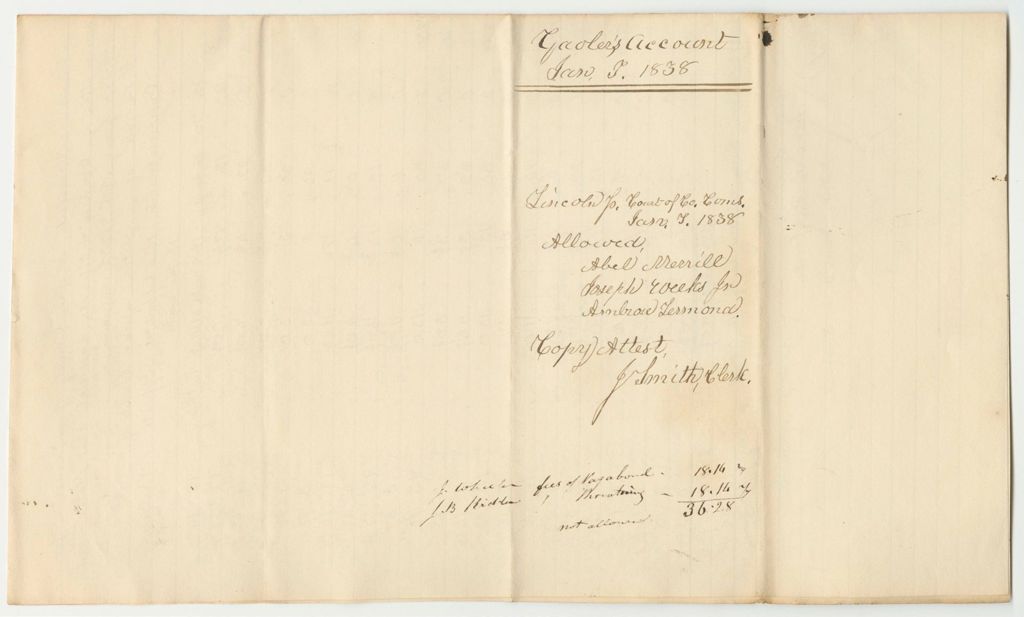 Gaoler's Account
Jan. T. 1838
Lincoln ss. Court of Co. Coms.
Jan. T. 1838
Allowed,
Abel Merrill
Joseph Weeks Jr
Ambrose Lermond.
Copy Attest,
J Smith, Clerk.
J. Wheeler fees of Vagabond - 18.14
J. B. " Threatning - 18.14
36.28
not allowed